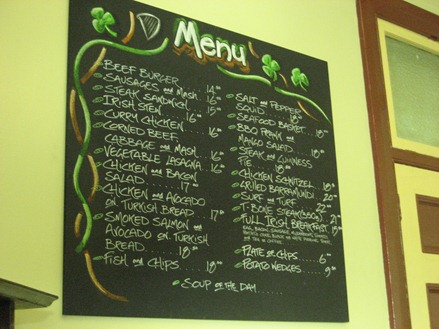 Menu
BEEF BURGER
SAUSAGES and MASH.. 14⁰⁰
STEAK SANDWICH.. 16⁰⁰
IRISH STEW ..... 15⁰⁰
CURRY CHICKEN
CORNED BEEF
CABBAGE and MASH.. 16⁰⁰
VEGETABLE LASAGNA.. 16⁰⁰
CHICKEN and BACON
SALAD ..... 17⁰⁰
CHICKEN and AVOCADO
ON TURKISH BREAD.. 17⁰⁰
SMOKED SALMON and
AVOCADO ON TURKISH
BREAD..... 18⁰⁰
FISH and CHIPS.... 18⁰⁰
SALT and PEPPER
SQUID ..... 18⁰⁰
SEAFOOD BASKET...
BBQ PRAWN and 18⁰⁰
MANGO SALAD.... 18⁰⁰
STEAK and GUINNESS
PIE ..... 18⁰⁰
CHICKEN SCHNITZEL.. 18⁰⁰
GRILLED BARRAMUNDI.. 20⁰⁰
SURF and TURF..
T-BONE STEAK (350g).
FULL IRISH BREAKFAST..
EGG, BACON, SAUSAGE
PLATE OF CHIPS.... 6⁰⁰
POTATO WEDGES.... 9⁰⁰
SOUP OF THE DAY.....